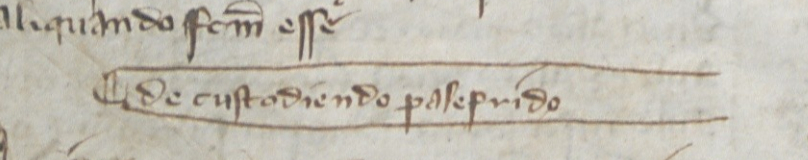 aliquando fcm̄ esse᷑
¶ de custodiendo palefrido